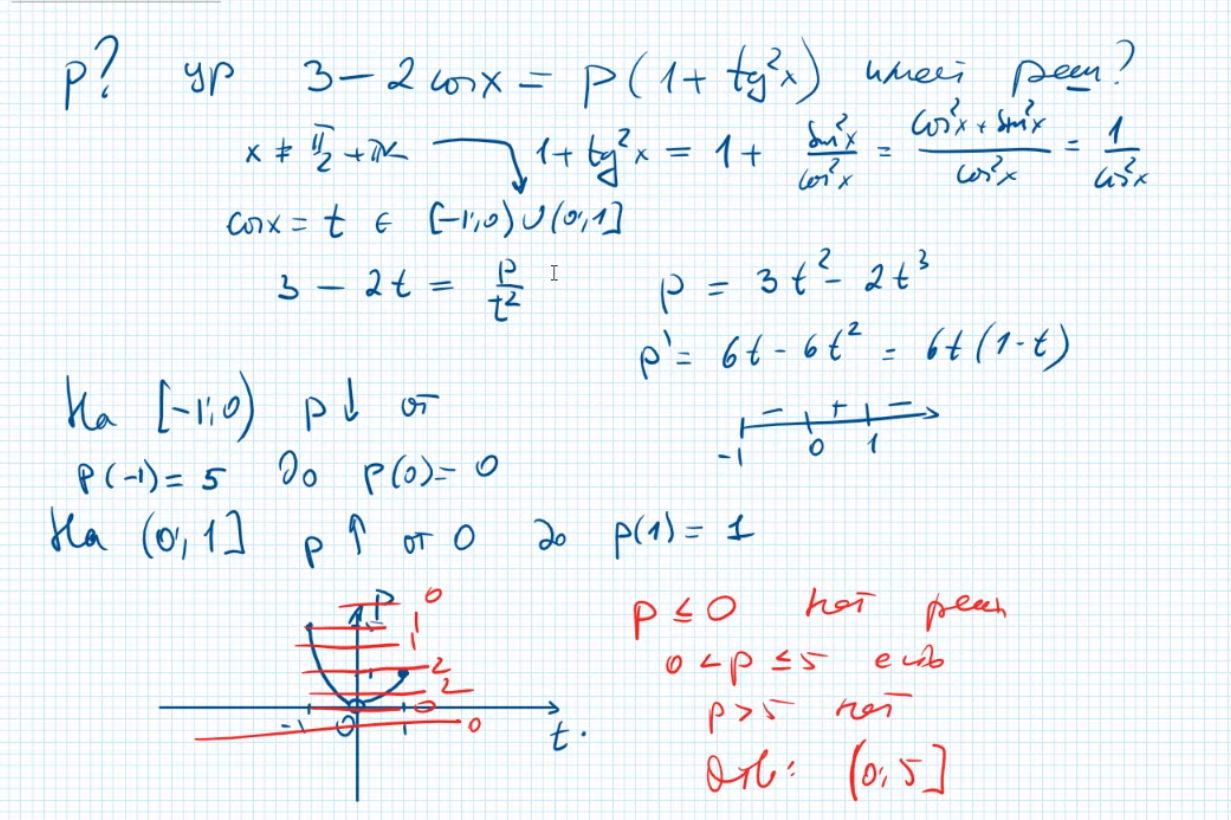 p? ур 3 − 2 cos x = p(1 + tg²x) имеет реш?
x ≠ π/2 + πk 1 + tg²x = 1 + sin²x/cos²x = (cos²x + sin²x)/cos²x = 1/cos²x
cos x = t ∈ [−1; 0) ∪ (0; 1]
3 − 2t = p/t² p = 3t² − 2t³
p' = 6t − 6t² = 6t(1 − t)
На [−1; 0) p ↓ от
− + −
−1 0 1
p(−1) = 5 до p(0) = 0
На (0; 1] p ↑ от 0 до p(1) = 1
p 0
1
1
2
2
0
−1 0 t. 0
p ≤ 0 нет реш
0 < p ≤ 5 есть
p > 5 нет
Отв: (0; 5]